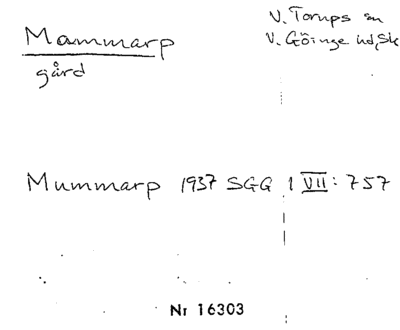 Mammarp
gård
V. Torups sn
V. Göinge hd, Sk
Mummarp 1937 SGG 1 VII: 757
Nr 16303